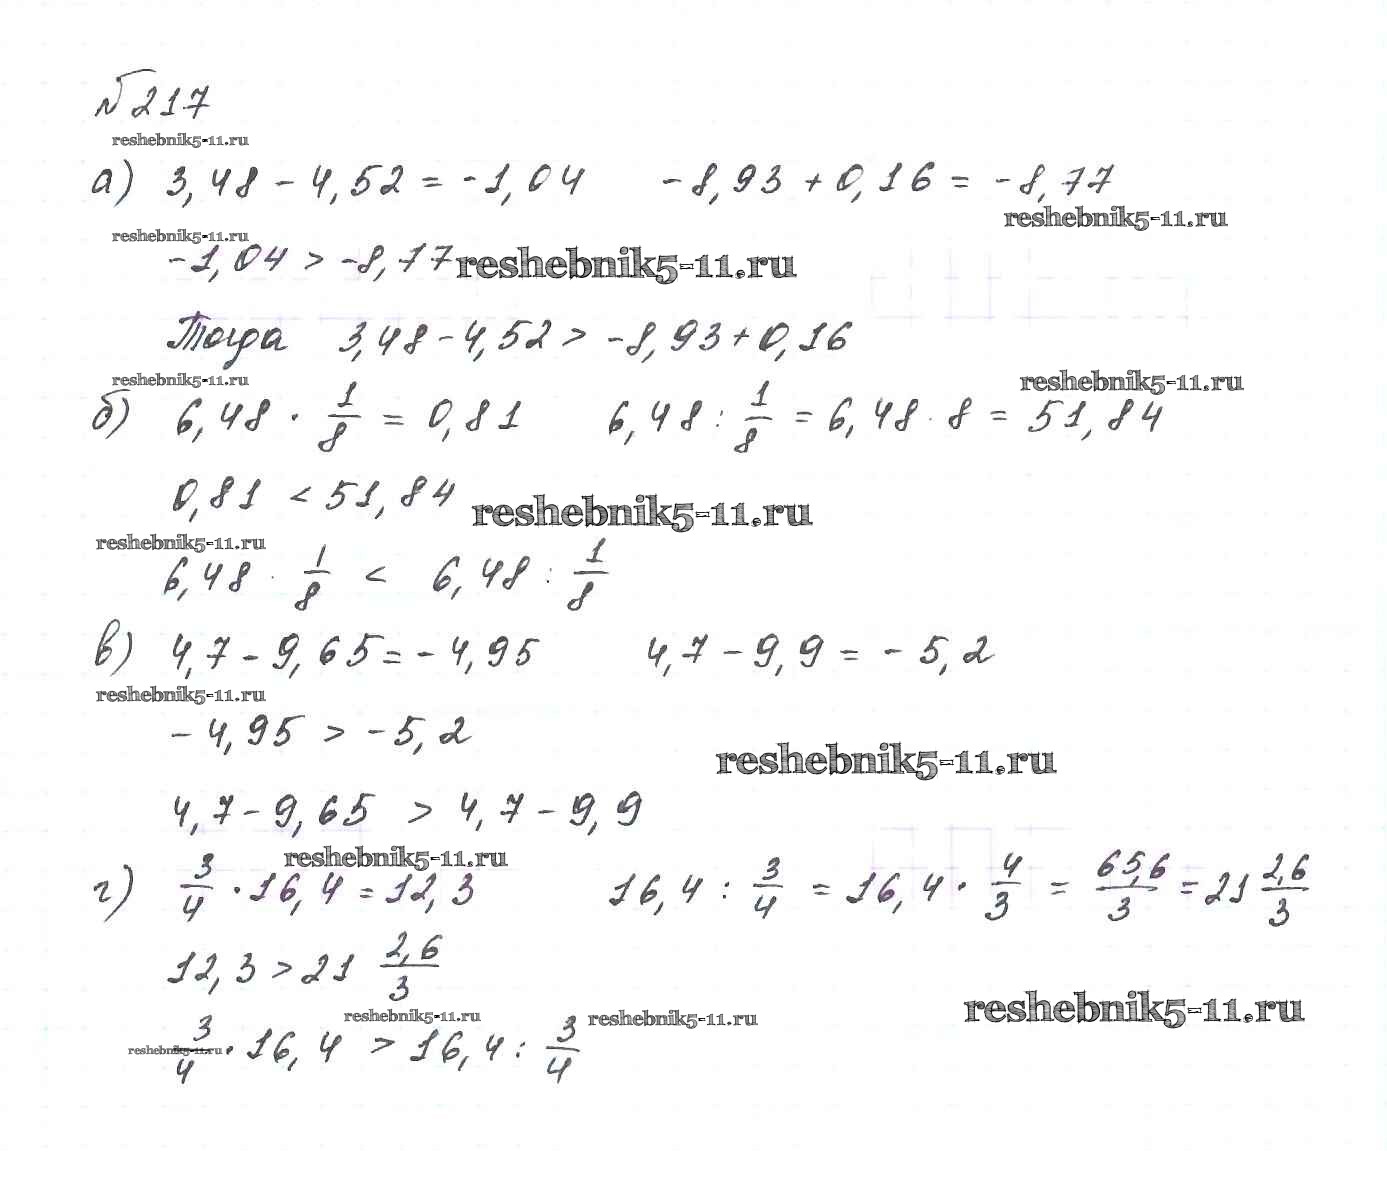 №217
reshebnik5-11.ru
а) 3,48 - 4,52 = -1,04 -8,93 + 0,16 = -8,77
reshebnik5-11.ru
reshebnik5-11.ru
-1,04 > -8,77 reshebnik5-11.ru
Тогда 3,48 - 4,52 > -8,93 + 0,16
reshebnik5-11.ru reshebnik5-11.ru
б) 6,48 · 1/8 = 0,81 6,48 : 1/8 = 6,48 · 8 = 51,84
0,81 < 51,84 reshebnik5-11.ru
reshebnik5-11.ru
6,48 · 1/8 < 6,48 : 1/8
в) 4,7 - 9,65 = -4,95 4,7 - 9,9 = -5,2
reshebnik5-11.ru
-4,95 > -5,2
reshebnik5-11.ru
4,7 - 9,65 > 4,7 - 9,9
reshebnik5-11.ru
г) 3/4 · 16,4 = 12,3 16,4 : 3/4 = 16,4 · 4/3 = 65,6/3 = 21 2,6/3
12,3 > 21 2,6/3
reshebnik5-11.ru reshebnik5-11.ru reshebnik5-11.ru
reshebnik5-11.ru
3/4 · 16,4 > 16,4 : 3/4